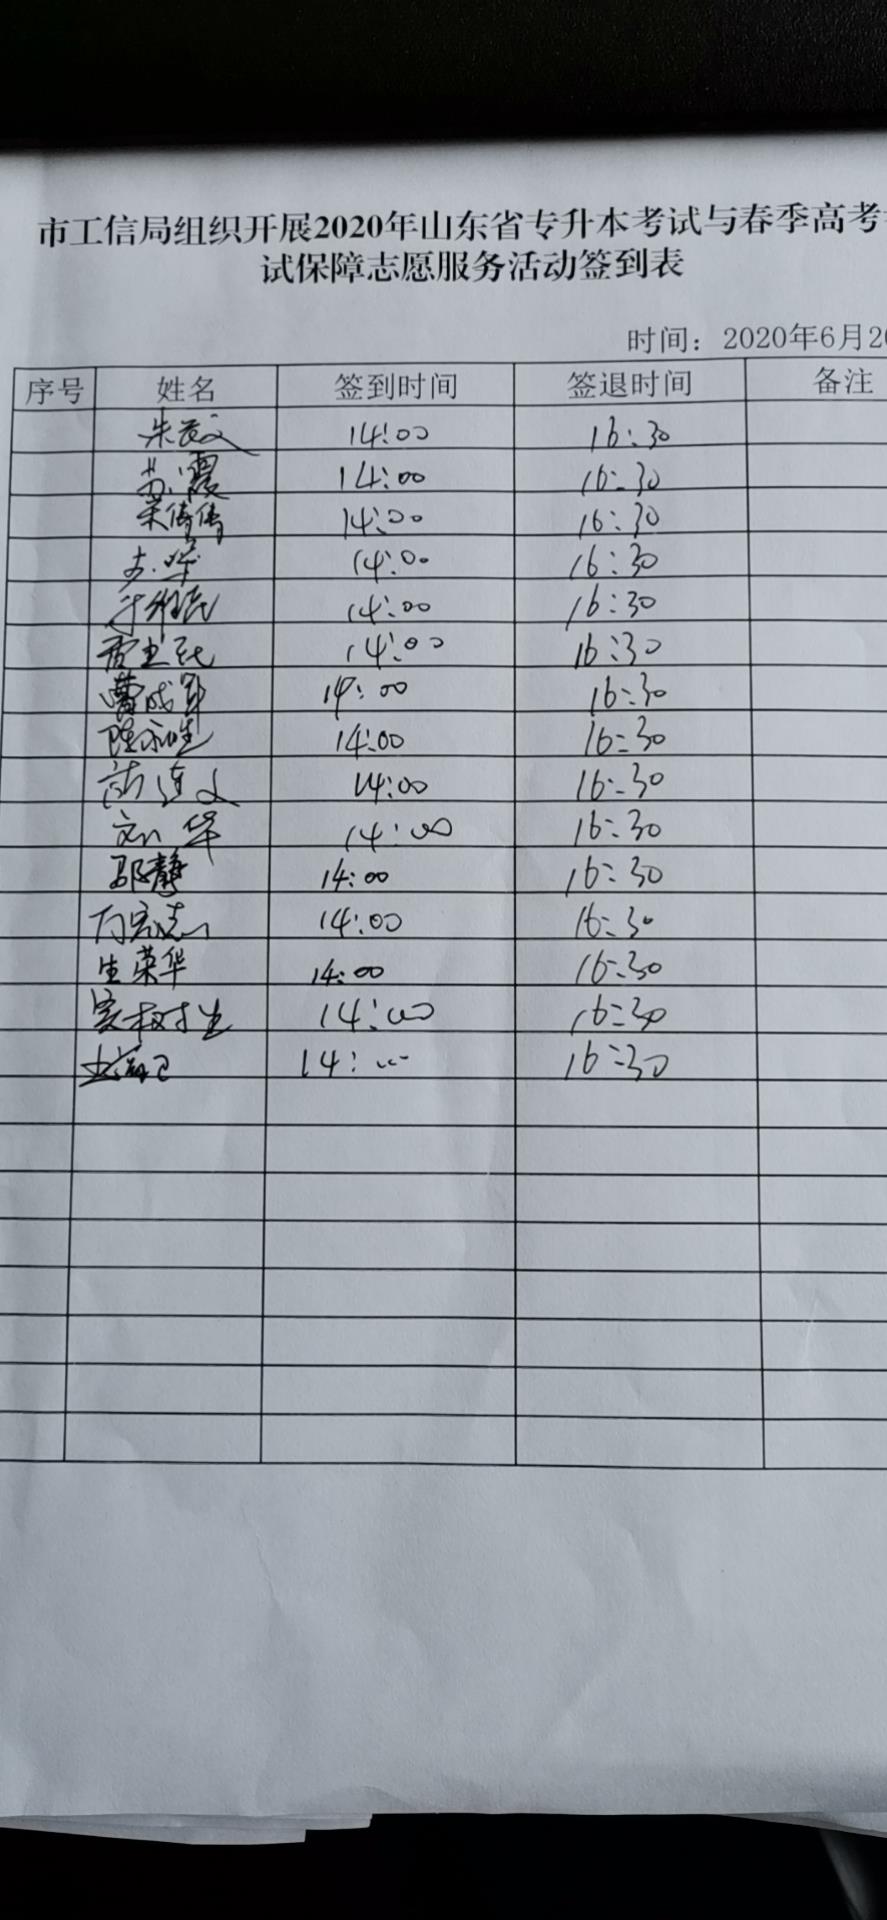 市工信局组织开展2020年山东省专升本考试与春季高考
试保障志愿服务活动签到表
时间：2020年6月20
序号 姓名 签到时间 签退时间 备注
14:00 16:30
苏霞 14:00 16:30
宋倩倩 14:00 16:30
14:00 16:30
14:00 16:30
14:00 16:30
曹成军 14:00 16:30
14:00 16:30
14:00 16:30
刘华 14:00 16:30
邵静 14:00 16:30
14:00 16:30
生荣华 14:00 16:30
14:00 16:30
14:00 16:30